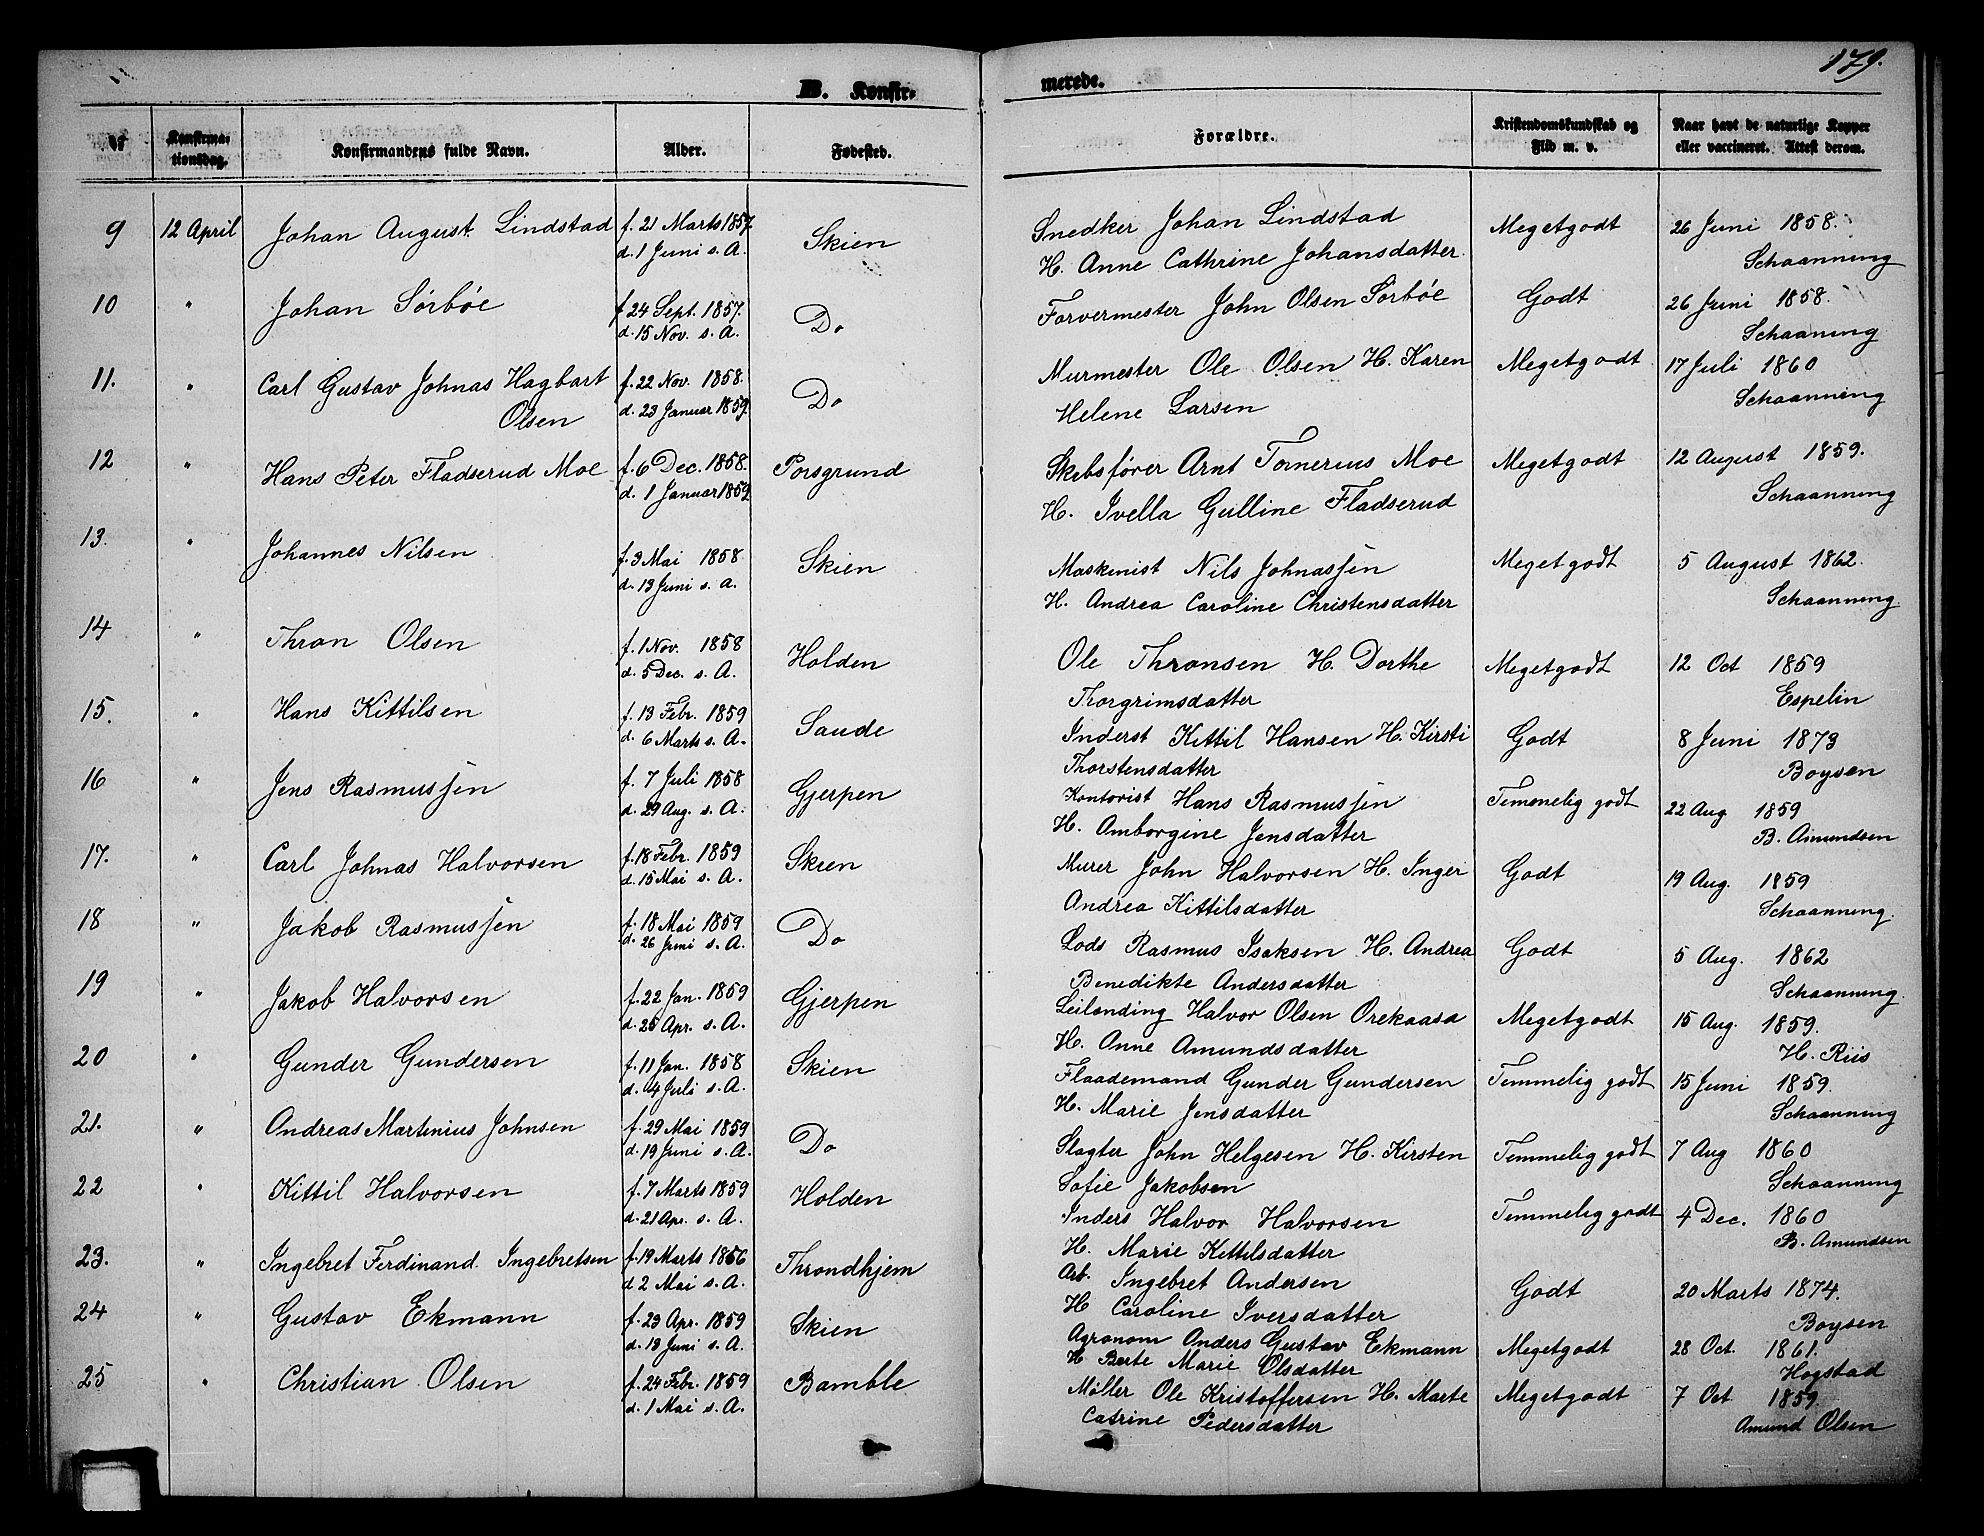 179.
B. Konfir-
merede.
No
Konfirma-
tionsdag.
Konfirmandens fulde Navn.
Alder.
Fødested.
Forældre.
Kristendomskundskab og
Flid m. v.
Naar havt de naturlige Kopper
eller vaccineret. Attest derom.
9 12 April Johan August Lindstad f. 21 Marts 1857. Skien Snedker Johan Lindstad Megetgodt 26 Juni 1858.
d. 1 Juni s. A. H. Anne Cathrine Johansdatter. Schaanning
10 " Johan Sörböe f 24 Sept. 1857. Do Farvermester John Olsen Sörböe Godt 26 Juni 1858.
d. 15 Nov. s. A. Schaanning
11. " Carl Gustav Johnas Hagbart f. 22 Nov. 1858. Do Murmester Ole Olsen H. Karen Megetgodt 17 Juli 1860
Olsen d. 23 Januar 1859. Helene Larsen Schaanning
12 " Hans Peter Fladserud Moe f. 6 Dec. 1858. Porsgrund Skibsförer Arnt Tornerius Moe Megetgodt 12 August 1859.
d. 1 Januar 1859 H. Ivella Gulline Fladserud Schaanning
13. " Johannes Nilsen f. 3 Mai 1858. Skien Maskinist Nils Johnassen Megetgodt 5 August 1862.
d. 13 Juni s. A. H. Andrea Caroline Christensdatter Schaanning
14 " Thron Olsen f. 1 Nov. 1858 Holden Ole Thronsen H. Dorthe Megetgodt 12 Oct 1859
d. 5 Dec. s. A. Thorgrimsdatter Espelin
15. " Hans Kittilsen f. 13 Febr. 1859 Saude Inderst Kittil Hansen H. Kirsti Godt 8 Juni 1873
d. 6 Marts s. A. Thorstensdatter Boysen
16 " Jens Rasmussen f. 7 Juli 1858 Gjerpen Kontorist Hans Rasmussen Temmelig godt 22 Aug 1859
d. 29 Aug. s. A. H. Amborgine Jensdatter B. Amundsen
17. " Carl Johnas Halvorsen f. 18 Febr. 1859 Skien Murer John Halvorsen H. Inger Godt 19 Aug. 1859
d. 15 Mai s. A. Andrea Kittilsdatter Schaanning.
18 " Jakob Rasmussen f. 18 Mai 1859 Do Lods Rasmus Isaksen H. Andrea Godt 5 Aug. 1862
d. 26 Juni s. A. Benedikte Andersdatter Schaanning.
19 " Jakob Halvorsen f. 22 Jan. 1859 Gjerpen Leilending Halvor Olsen Orekaasa Megetgodt 15 Aug. 1859.
d. 25 Apr. s. A. H. Anne Amundsdatter H. Riis
20 " Gunder Gundersen f. 11 Jan. 1858 Skien Flaademand Gunder Gundersen Temmelig godt 15 Juni 1859.
d. 4 Juli s. A. H. Marie Jensdatter Schaanning
21. " Andreas Martinius Johnsen f. 29 Mai 1859 Do Slagter John Helgesen H. Kirsten Temmelig godt 7 Aug 1860
d. 19 Juni s. A. Sofie Jakobsen Schaanning
22 " Kittil Halvorsen f. 7 Marts 1859 Holden Inders Halvor Halvorsen Temmelig godt 4 Dec. 1860
d. 21 Apr. s. A. H. Marie Kittilsdatter B. Amundsen
23. " Ingebret Ferdinand Ingebretsen f. 19 Marts 1856 Throndhjem Arb. Ingebret Andersen Godt 20 Marts 1874.
d 2 Mai s. A. H Caroline Iversdatter Boysen
24 " Gustav Ekmann f. 23 Apr. 1859 Skien Agronom Anders Gustav Ekmann Megetgodt 28 Oct. 1861.
d. 13 Juni s. A. H Berte Marie Olsdatter Hogstad
25 " Christian Olsen f. 24 Febr. 1859 Bamble Møller Ole Kristoffersen H. Marte Megetgodt 7 Oct 1859.
d. 1 Mai s. A. Catrine Pedersdatter Amund Olsen